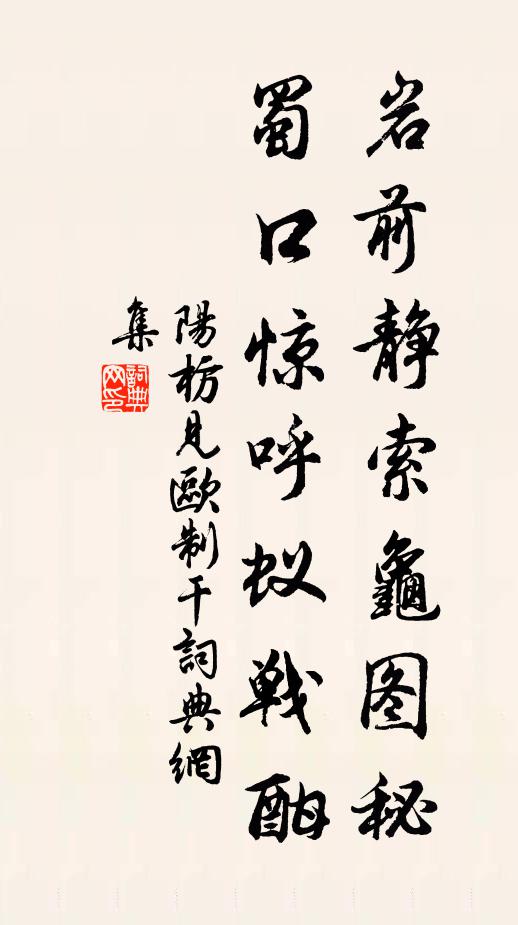 岩前静索龜图秘
蜀口惊呼蚁戦酣
陽枋見歐制干詞典網
集
詞典
网印